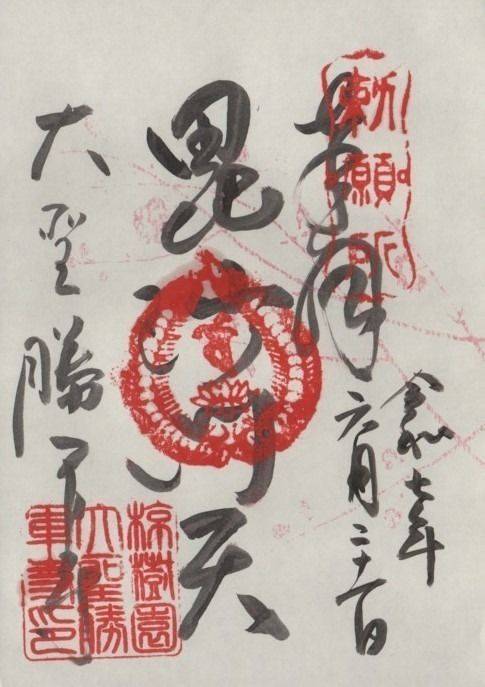 勅願所
奉拝
令和七年
六月二十一日
毘沙門天
大聖勝軍寺
椋樹園
大聖勝
軍寺印